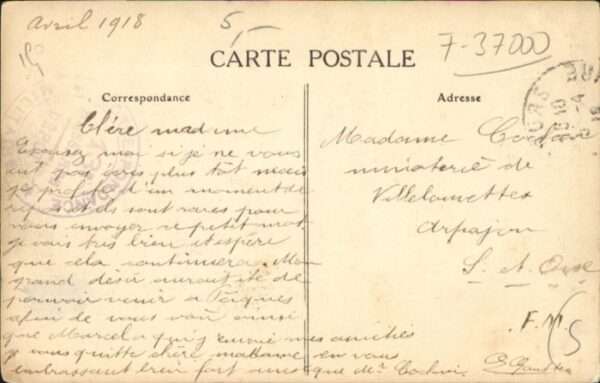 Avril 1918
5
7-37000
CARTE POSTALE
Correspondance
Adresse
Chère madame
Excusez moi si je ne vous
ait pas écris plus tôt mais
je profite d'un moment de
repos et ils sont rares pour
vous envoyer ce petit mot
je vais très bien et espère
que cela continuera. Mon
grand désir aurait été de
pouvoir venir a Pâques
afin de vous voir ainsi
que Marcel a qui j'envoie mes amitiés
je vous quitte chère madame en vous
embrassant bien fort ainsi que
Madame
ministerie de
Villelouvettes
Arpajon
S. et Oise
F. M.